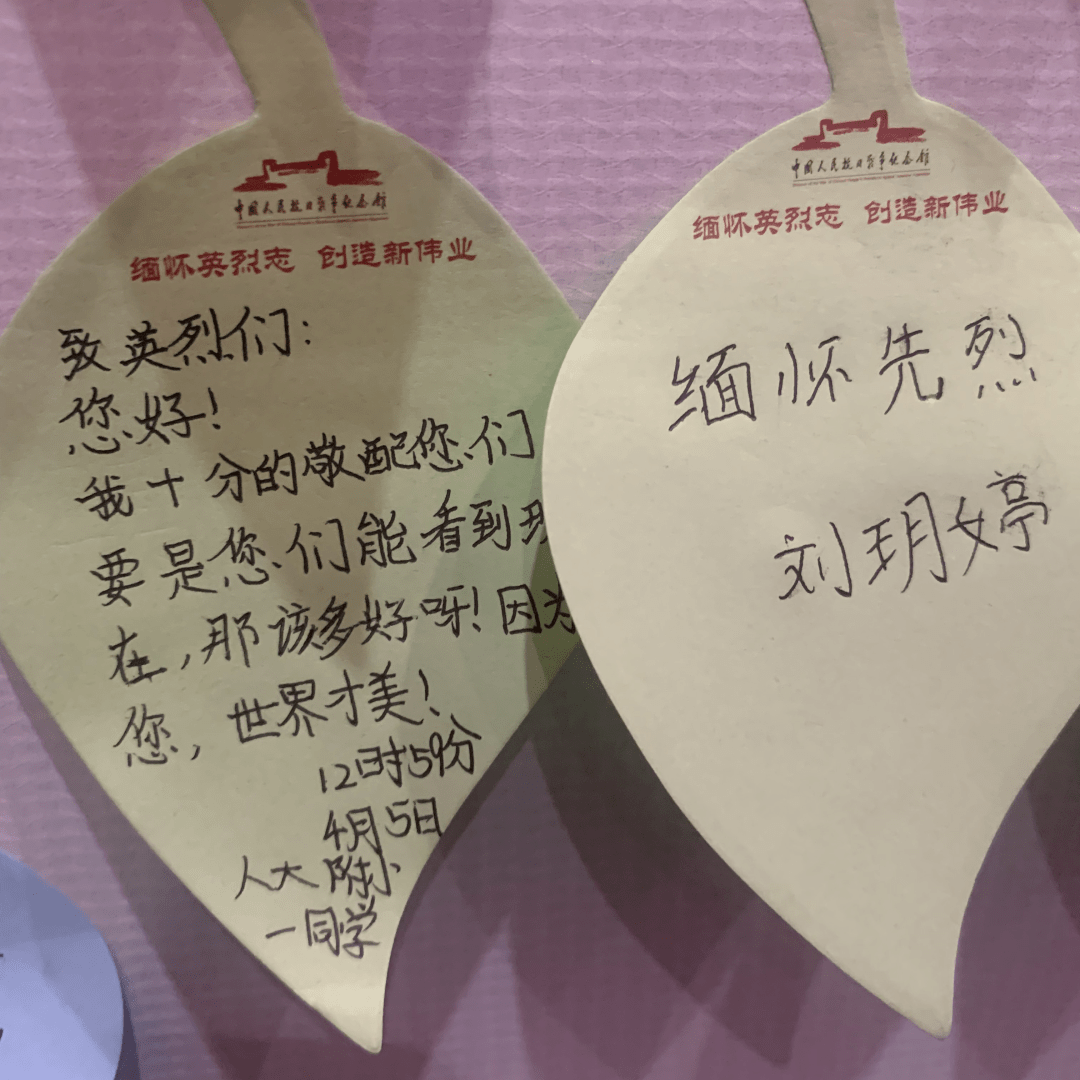 中国人民抗日战争纪念馆
缅怀英烈志 创造新伟业
致英烈们:
您好!
我十分的敬配您们
要是您们能看到现
在,那该多好呀!因为
您,世界才美!
12时59分
4月5日
人大附小
一同学
中国人民抗日战争纪念馆
缅怀英烈志 创造新伟业
缅怀先烈
刘玥婷